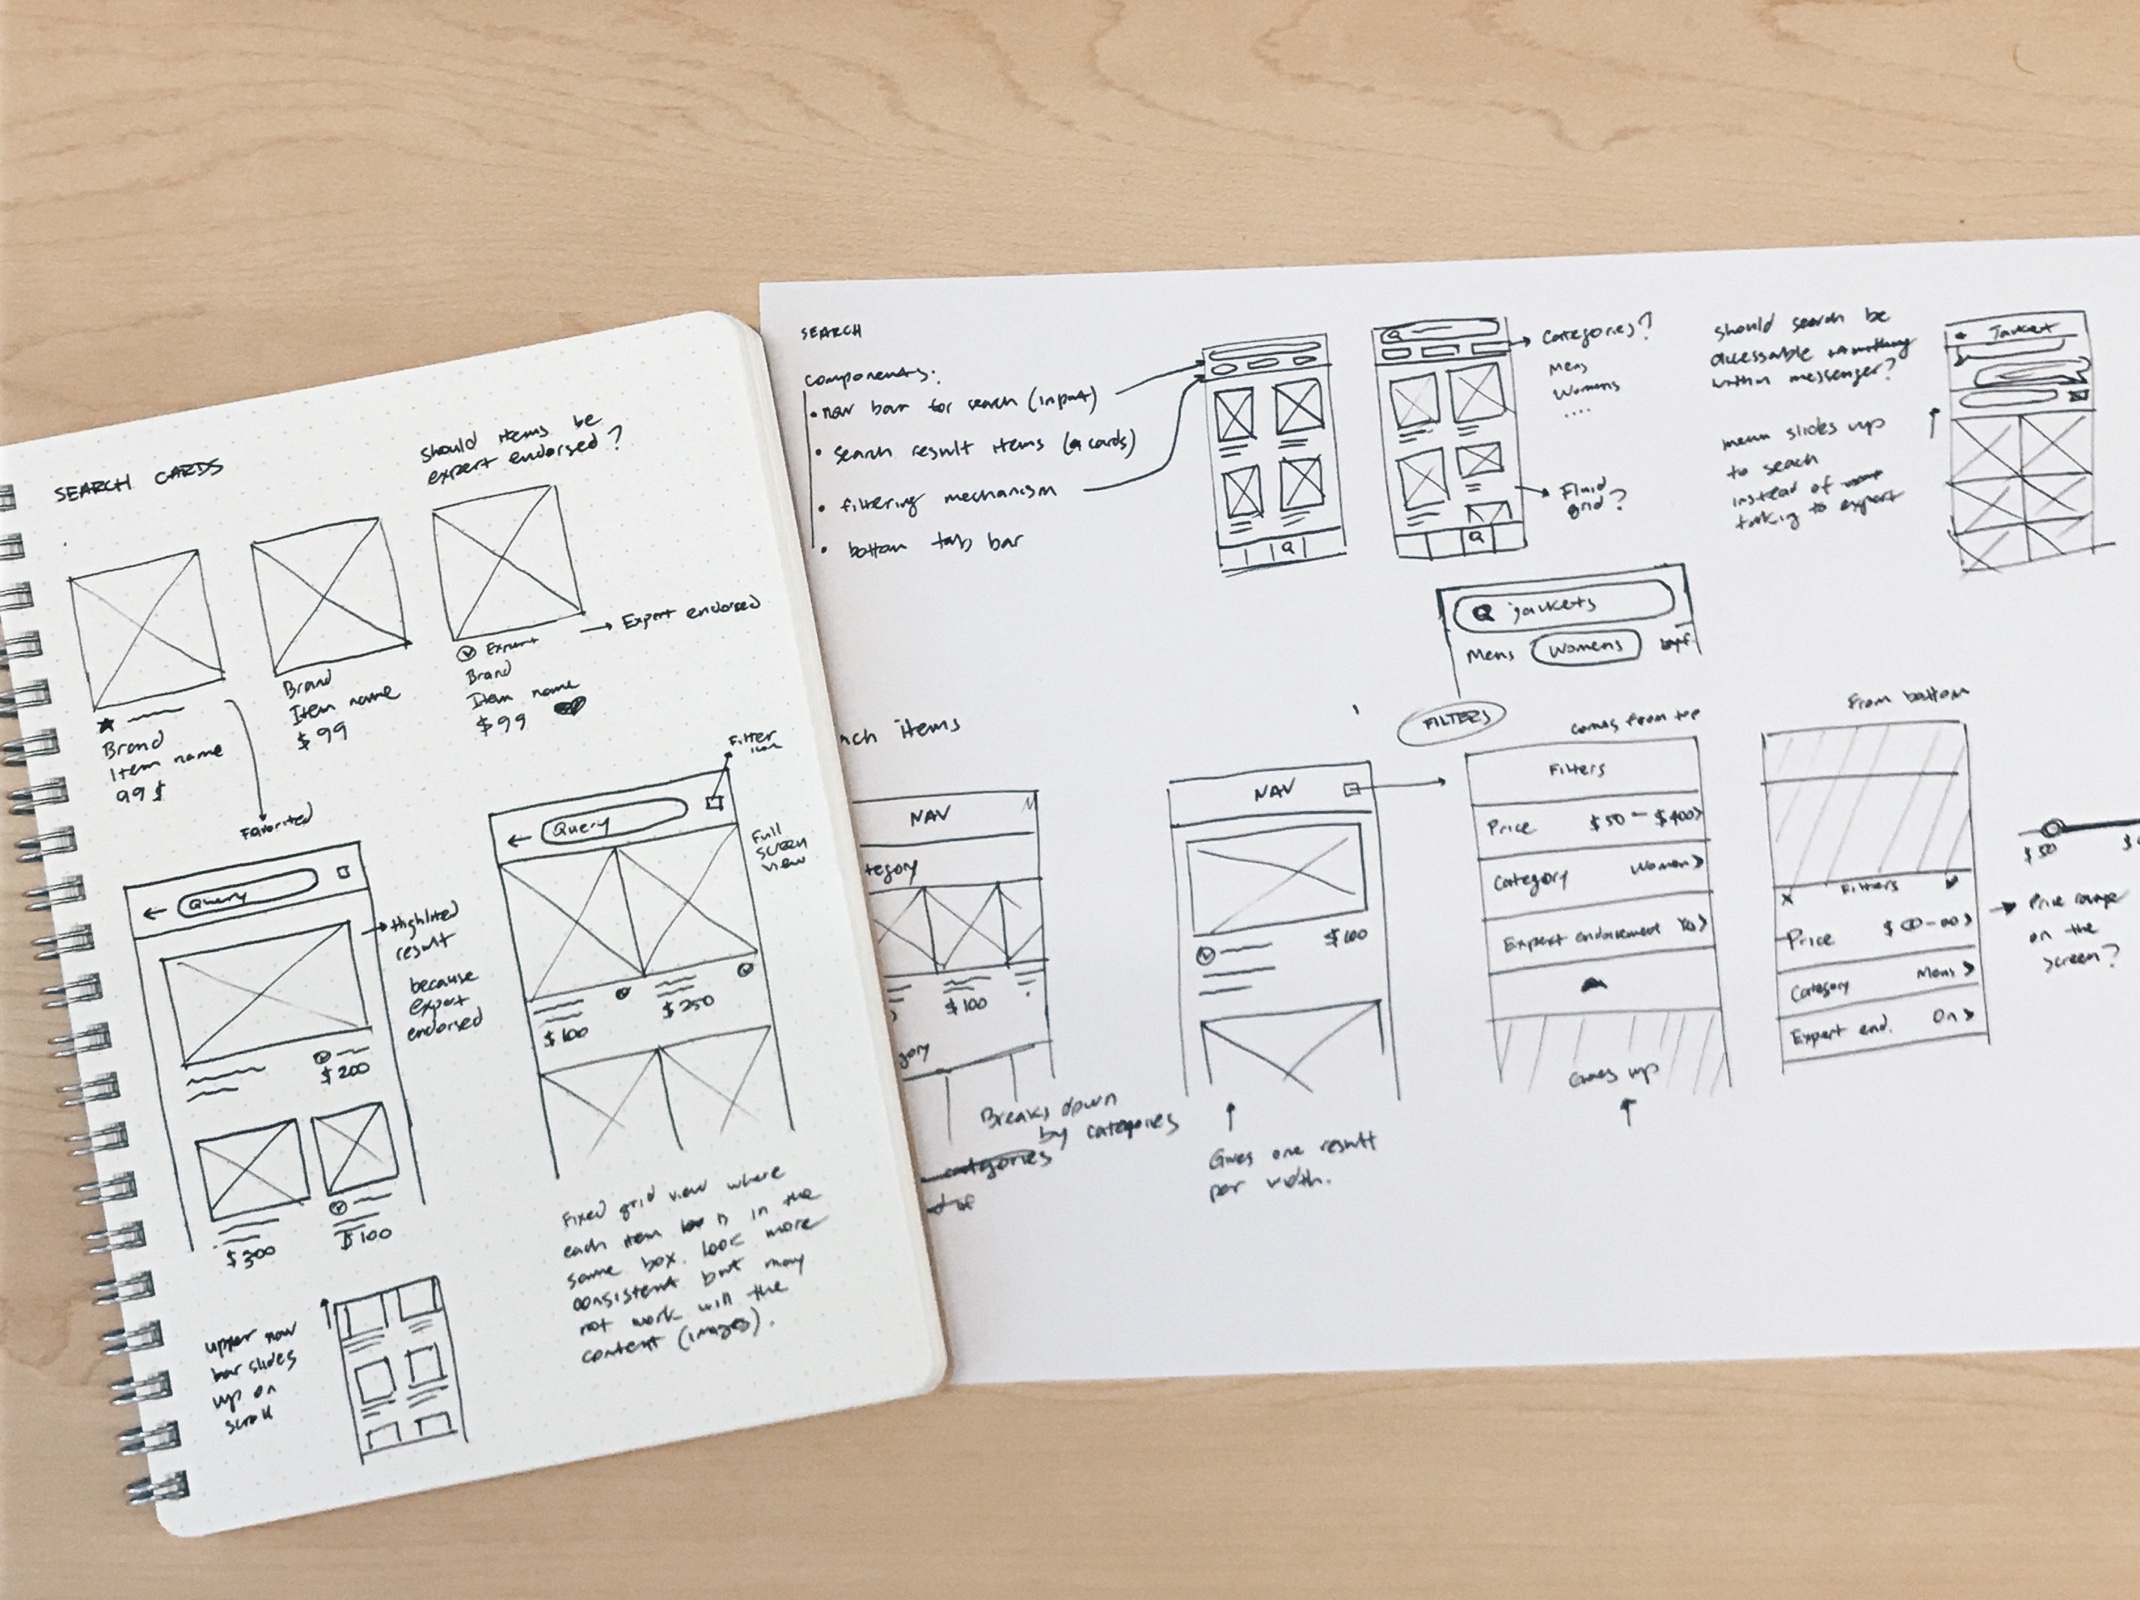 SEARCH CARDS
should items be
expert endorsed?
Brand
Item name
99 $
Favorited
Brand
Item name
$99
Expert
Brand
Item name
$99
Expert endorsed
Query
Highlited
result
because
expert
endorsed
$200
$300
$100
upper nav
bar slides
up on
scroll
Filter
icon
Query
Full
screen
view
$100
$250
Fixed grid view where
each item is in the
same box. look more
consistent but may
not work will the
content (images).
SEARCH
components:
• nav bar for search (input)
• search result items (a cards)
• filtering mechanism
• bottom tab bar
Q
Q
Q
Categories?
Mens
Womens
....
Fluid
grid?
should search be
accessable
within messenger?
menu slides up
to seach
instead of
talking to expert
Jacket
Q jackets
Mens Womens
ch items
NAV
tegory
$100
gory
Breaks down
by categories
categories
NAV
$100
Gives one result
per width.
FILTERS
comes from top
Filters
Price $50 - $400>
Category Women>
Expert endorsement Yes>
Goes up
From bottom
x Filters
Price
Category Mens>
Expert end. On>
$50
Price range
on the
screen?